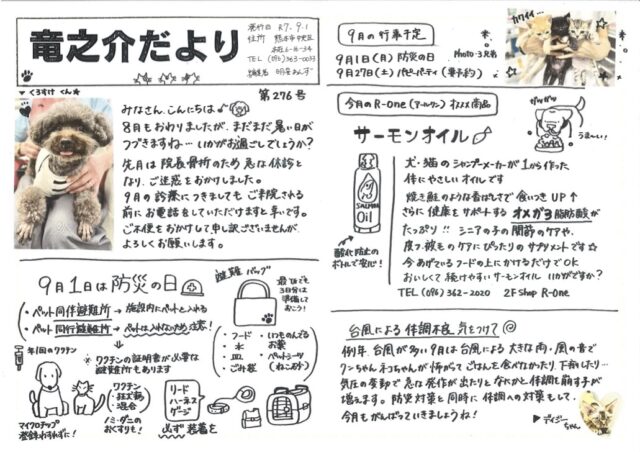 竜之介だより
発行日 R7.9.1
住所 熊本市中央区
TEL (096)363-0033
第276号
♥くろすけ くん★
みなさん、こんにちは
8月もおわりましたが、まだまだ暑い日が
つづきますね… いかがお過ごしでしょうか?
先月は院長骨折のため急な休診と
なり、ご迷惑をおかけしました。
9月の診療につきましてもご来院される
前にお電話をしていただけますと幸いです。
ご不便をおかけして申し訳ございませんが、
よろしくお願いします。
9月1日は防災の日
・ペット同伴避難所 → 施設内にペットと入れる
・ペット同行避難所 → ペットは入れないため注意!
年1回のワクチン
※ ワクチンの証明書が必要な
避難所もあります
ワクチン
・狂犬病
・混合
ノミ・ダニの
おくすりも!
マイクロチップ
登録わすれずに!
リード
ハーネス
ケージ
必ず装着を
避難バッグ
最低でも
3日分は
準備して
おこう!
・フード
・水
・皿
・ごみ袋
・いつものんでる
お薬
・ペットシーツ
(ねこ砂)
9月の行事予定
9月1日(月) 防災の日
9月27日(土) パピーパーティ(要予約)
カワイイ…
Photo・3兄弟
今月のR-One(アールワン)オススメ商品
サーモンオイル
ガツガツ
うま〜い!
SALMON
Oil
酸化防止の
ボトルで安心!
犬・猫のシャンプーメーカーが1から作った
体にやさしいオイルです
焼き鮭のような香ばしさで食いつきUP↑
さらに健康をサポートするオメガ3脂肪酸が
たっぷり!! シニアの子の関節のケアや、
皮フ、被毛のケアにぴったりのサプリメントです☆
今あげているフードの上にかけるだけでOK
おいしくて続けやすいサーモンオイルいかがですか?
TEL (096) 362-2020 2F Shop R-One
台風による体調不良、気をつけて
例年、台風が多い9月は台風による大きな雨・風の音で
ワンちゃん、ネコちゃんが怖がってごはんを食べなかったり、下痢したり…
気圧の変動で急な発作が出たりとなにかと体調を崩す子が
増えます。防災対策と同時に体調への対策もして、
今月もがんばっていきましょうね!
▶デイジー
ちゃん